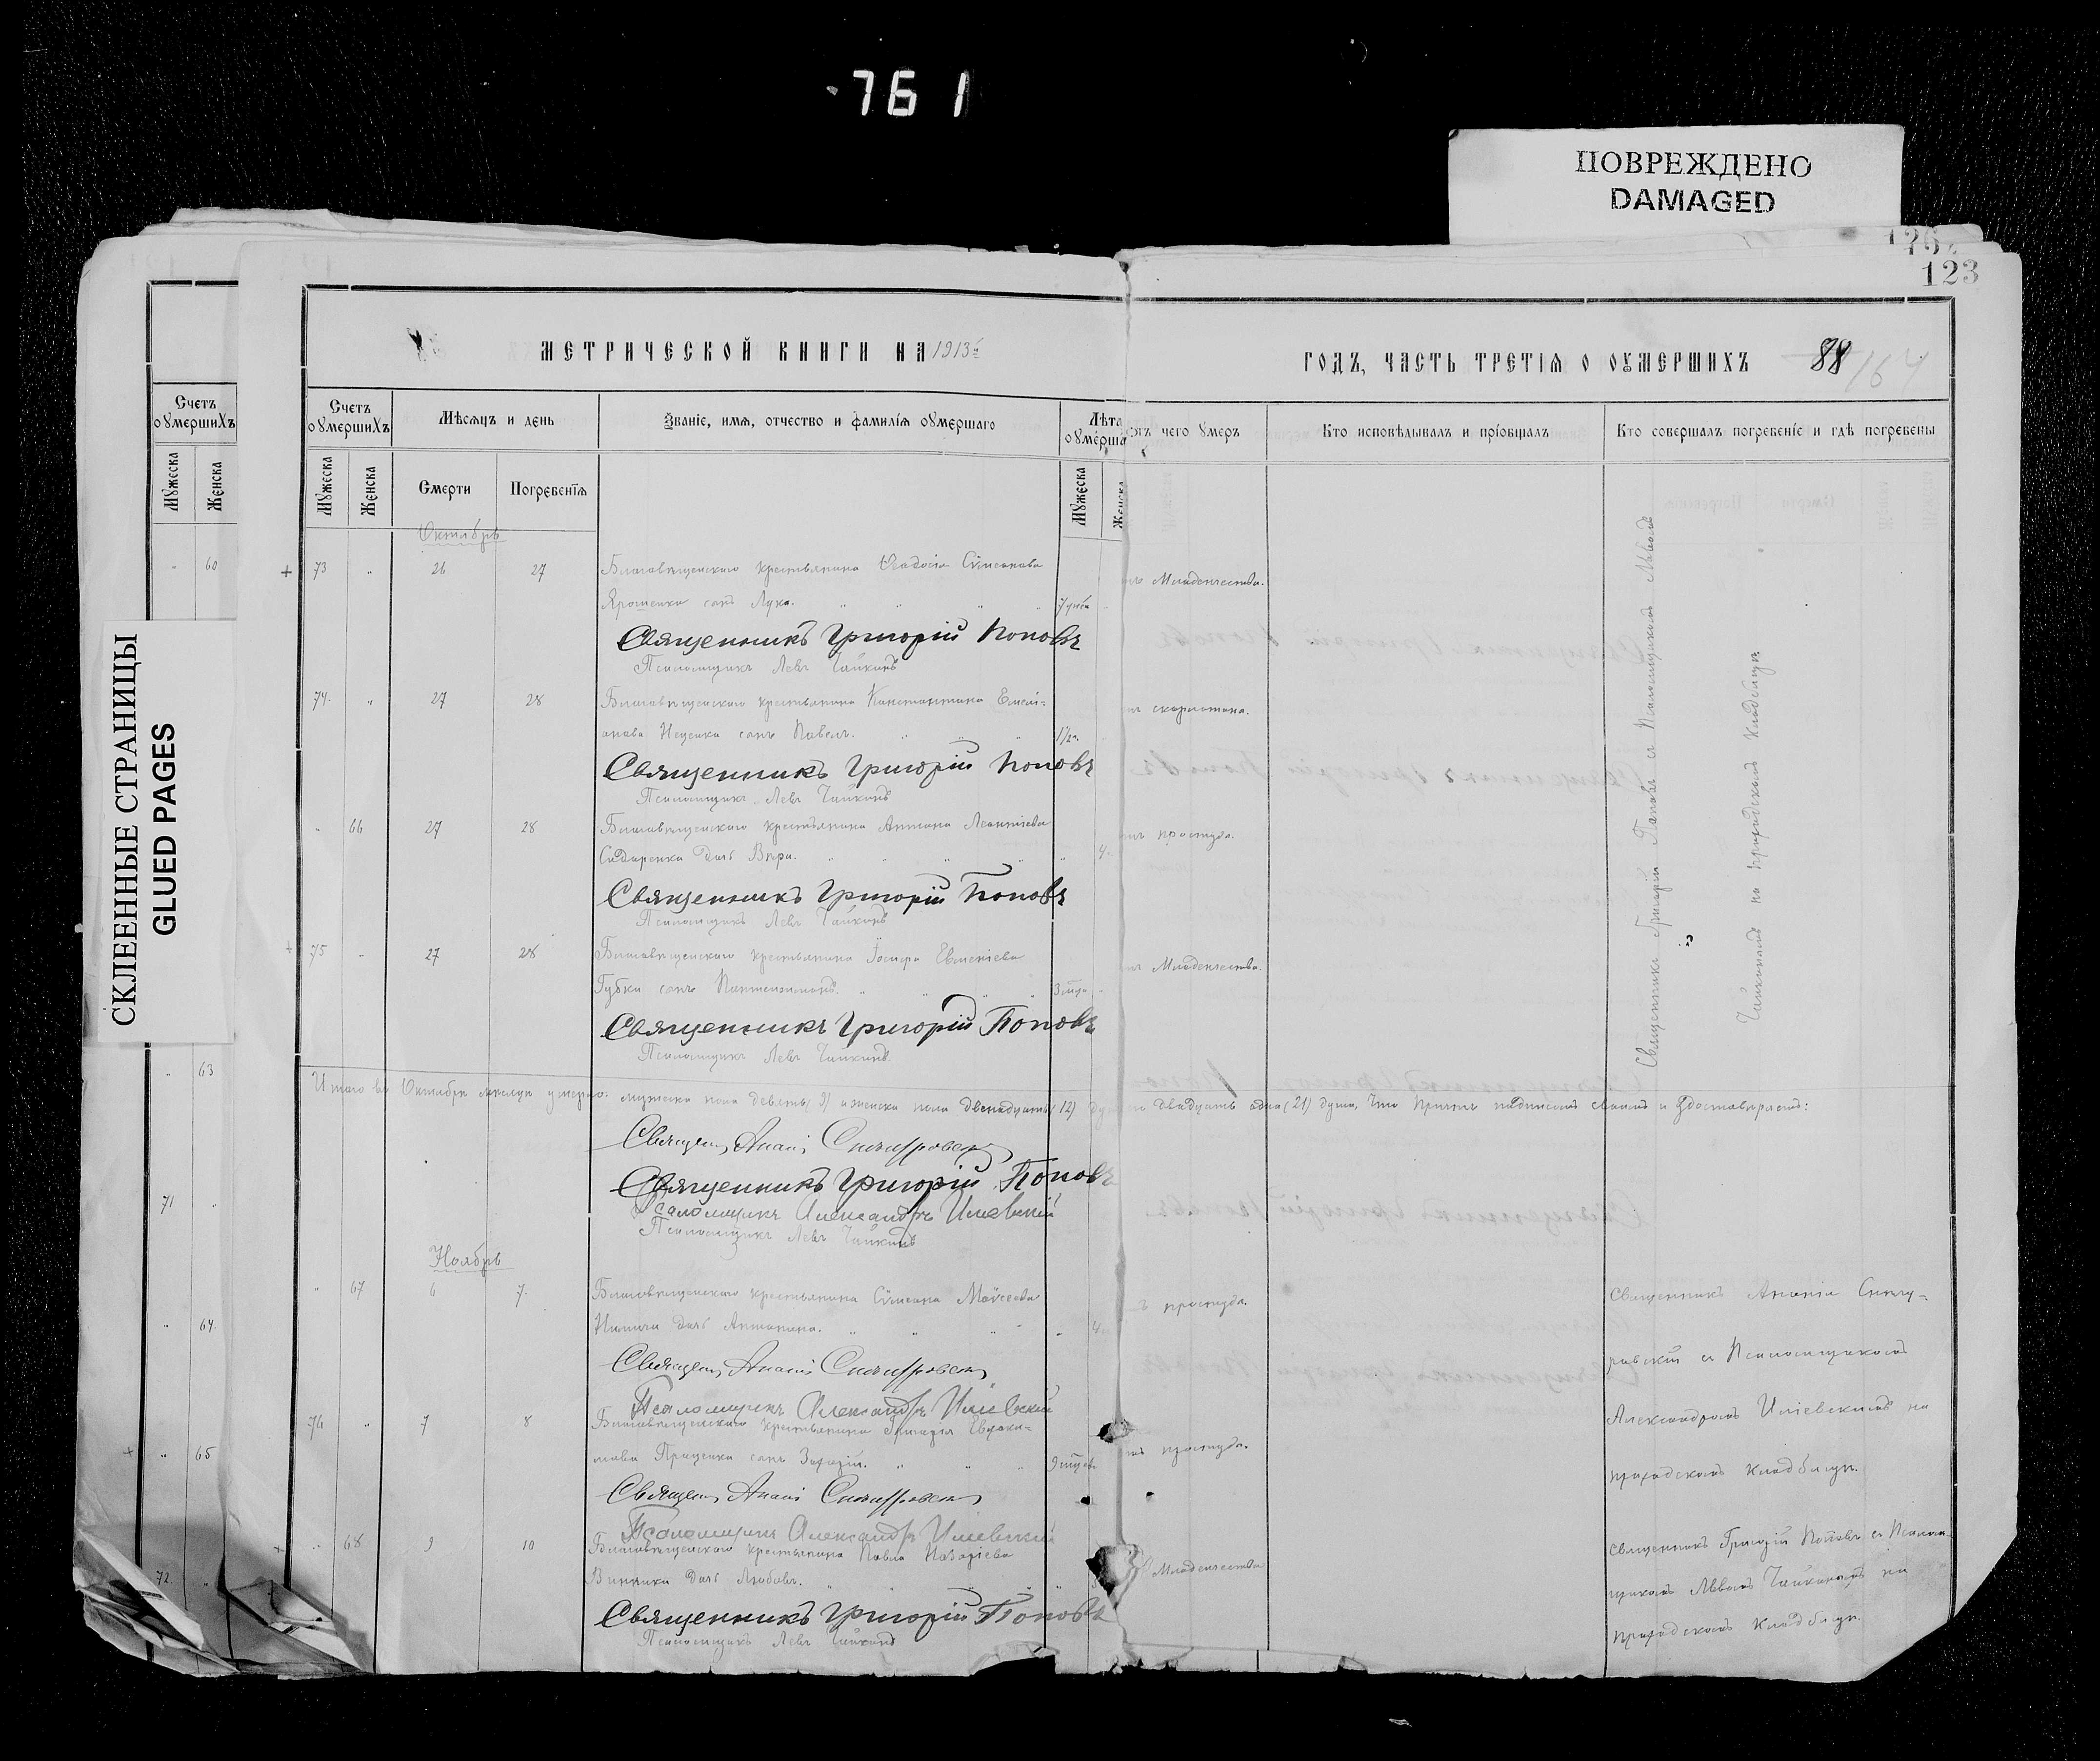 761
ПОВРЕЖДЕНО
DAMAGED
126
123
СКЛЕЕННЫЕ СТРАНИЦЫ
GLUED PAGES
МЕТРИЧЕСКОЙ КНИГИ НА 1913 г.
ГОДЪ, ЧАСТЬ ТРЕТІЯ О ОУМЕРШИХЪ
88
164
Счетъ оумершихъ
Мужеска
Женска
60
63
71
64.
65
72.
Счетъ оумершихъ
Мѣсяцъ и день
Званіе, имя, отчество и фамилія оумершаго
Лѣта оумерша
отъ чего умеръ
Кто исповѣдывалъ и пріобщалъ
Кто совершалъ погребеніе и гдѣ погребены
Мужеска
Женска
Смерти
Погребенія
Мужеска
Женска
Октябрь
73 " 26 27 Благовѣщенскаго крестьянина Ѳеодосія Сѵмеонова
Ярошенко сынъ Лука. 7 дней Младенчества.
Священникъ Григорій Поповъ
Псаломщикъ Левъ Чайкинъ
74. " 27 28 Благовѣщенскаго крестьянина Константина Емелі-
анова Ищенка сынъ Павелъ. 1½ г. скарлатина.
Священникъ Григорій Поповъ
Псаломщикъ Левъ Чайкинъ
" 66 27 28 Благовѣщенскаго крестьянина Антона Леонтіева
Сидоренка дочь Вѣра. 4 простуда.
Священникъ Григорій Поповъ
Псаломщикъ Левъ Чайкинъ
75 " 27 28 Благовѣщенскаго крестьянина Іосифа Евменіева
Губки сынъ Пантелеимонъ. Младенчества.
Священникъ Григорій Поповъ
Псаломщикъ Левъ Чайкинъ.
Священникъ Григорій Поповъ съ Псаломщикомъ Львомъ
Чайкинымъ на приходскомъ кладбищѣ.
Итого въ Октябрѣ мѣсяцѣ умерло: мужеска пола девять (9) и женска пола двенадцать (12) двадцать одна (21) душа, что причтъ подписомъ своимъ и удостовѣряетъ:
Священ. Ананій
Священникъ Григорій Поповъ
Псаломщикъ Александръ Иліевскій
Псаломщикъ Левъ Чайкинъ
Ноябрь
" 67 6 7. Благовѣщенскаго крестьянина Сѵмеона Моѵсеева
дочь Антонина. 4 простуда.
Священ. Ананій
Псаломщикъ Александръ Иліевскій
Священникъ Ананій
съ Псаломщикомъ
Александромъ Иліевскимъ на
приходскомъ кладбищѣ.
76 " 7 8 Благовѣщенскаго крестьянина Григорія Евдоки-
мова Проценка сынъ 9 мѣс. простуда.
Священ. Ананій
Псаломщикъ Александръ Иліевскій
" 68 9 10 Благовѣщенскаго крестьянина Павла Назаріева
Винника дочь Любовь. Младенчества
Священникъ Григорій Поповъ
Псаломщикъ Левъ Чайкинъ
Священникъ Григорій Поповъ съ Псалом-
щикомъ Львомъ Чайкинымъ на
приходскомъ кладбищѣ.